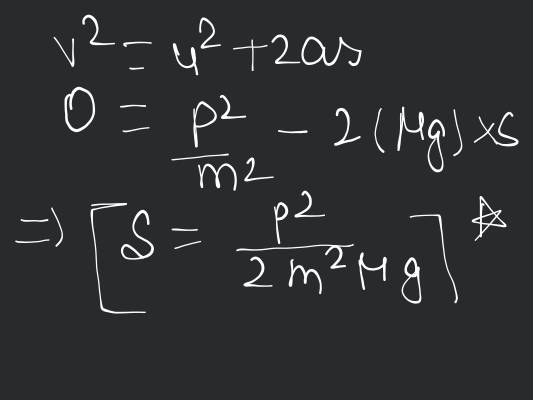 v² = u² + 2as
0 = p²/m² - 2(μg)×s
⇒ [S = p²/2m²μg] ☆